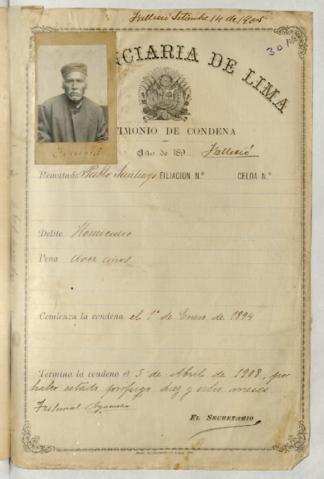 Falleció Setiembre 14 de 1905
30
NCIARIA DE LIMA
TIMONIO DE CONDENA
Año de 189 Falleció
Rematado Pablo Santiago FILIACION N.º CELDA N.º
Delito Homicidio
Pena doce años
Comienza la condena el 1º de Enero de 1894
Termina la condena el 5 de Abril de 1908, por
haber estado prófugo diez y ocho meses
Tribunal Ayacucho
EL SECRETARIO